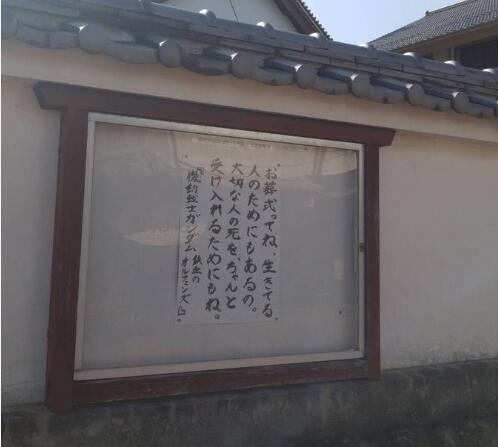 お葬式ってね、生きてる
人のためにもあるの。
大切な人の死を、ちゃんと
受け入れるためにもね。
『機動戦士ガンダム 鉄血の
オルフェンズ』